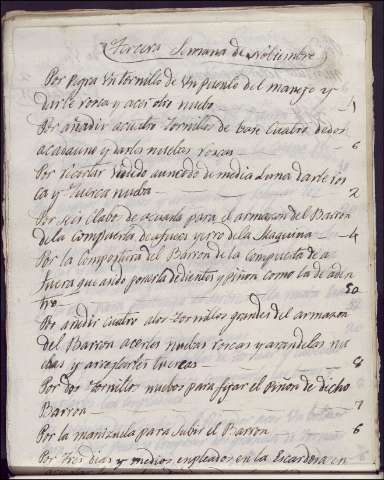 Tercera Semana de Nobiembre
Por pone un tornillo de un puente del manejo y
darle rosca y acer otro nuebo 4
Por añadir a cuatro tornillos de base cuatro dedos
a cada uno y darles nuebas roscas 6
Por recortar un codo de media Luna darle ros
ca y tuerca nueba 2
Por seis Clabos de acuarta para el armazon del Barron
de la Compuerta de afuera yerro de la Maquina 4
Por la compostura del Barron de la compuerta de a
fuera que ando ponerla de dientes y Piñon como la de aden
tro 50
Por añadir cuatro alos tornillos grandes del armazon
del Barron acerles nuebas roscas y arandelas nu
ebas y arreglarles tuercas 8
Por dos tornillos nuebos para fijar el Piñon de dicho
Barron 7
Por la manizuela para subir el Barron 6
Por tres dias y medios empleados en la Escardera en